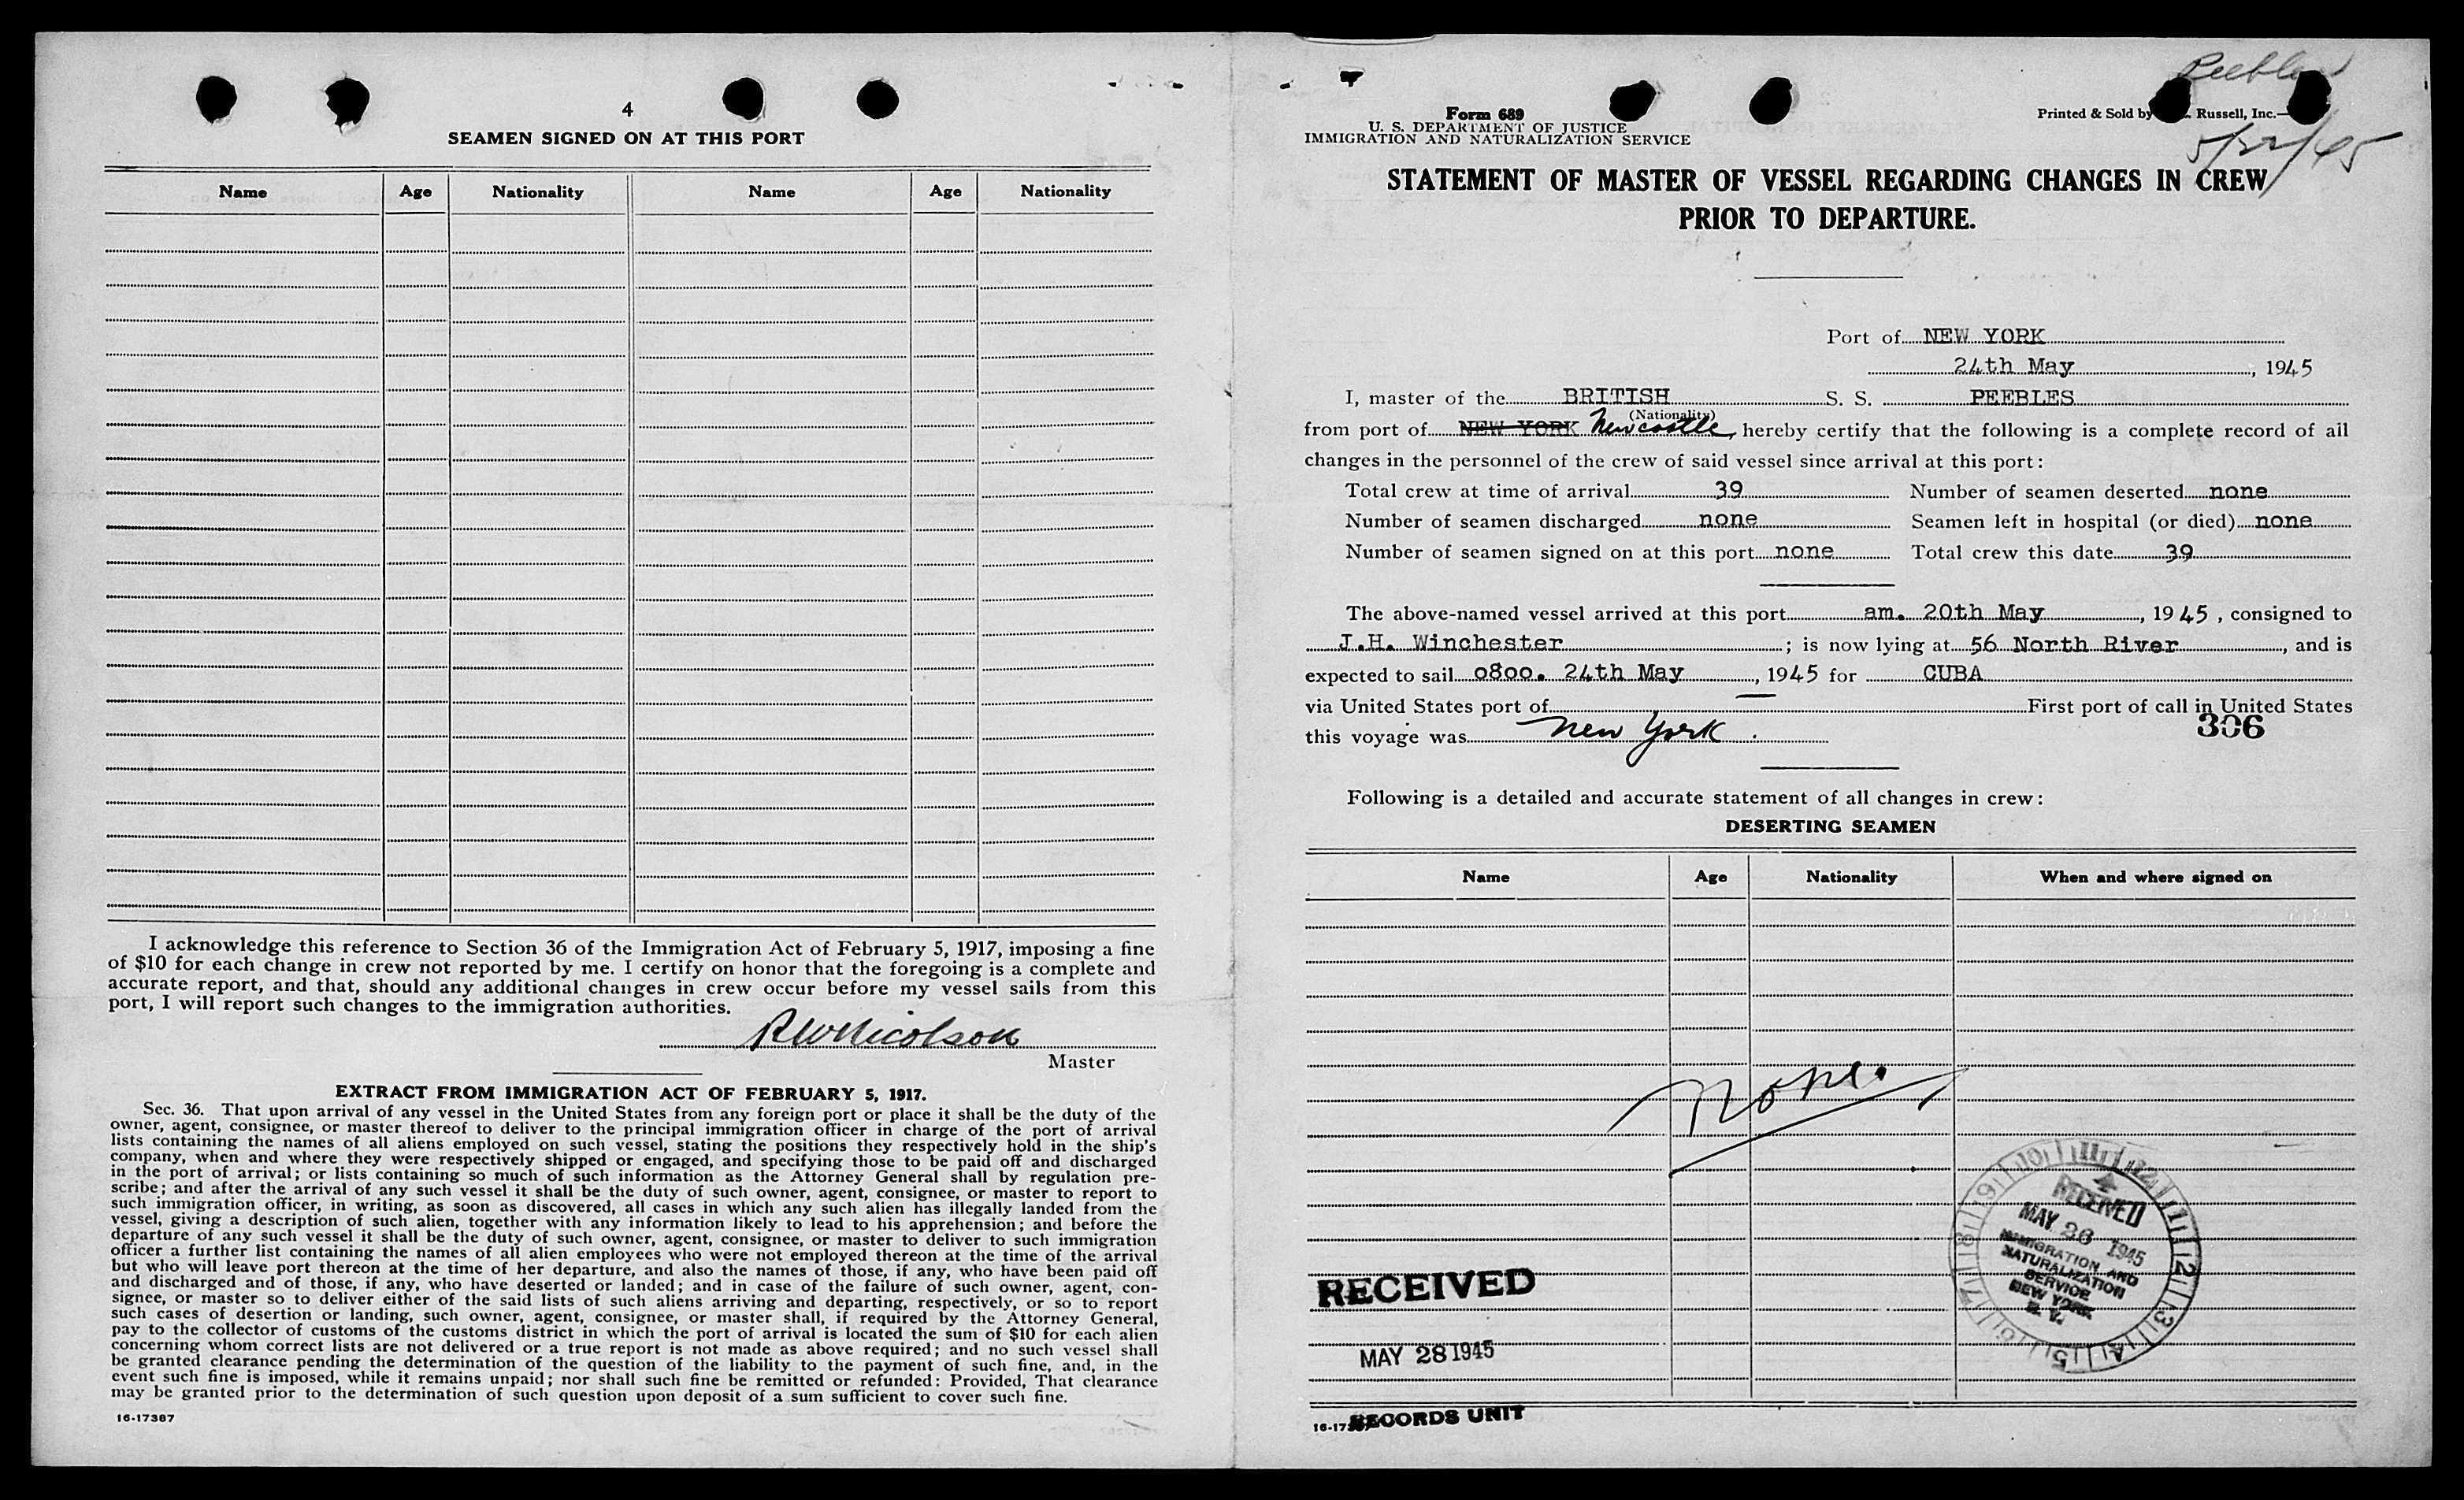 4
SEAMEN SIGNED ON AT THIS PORT
Name Age Nationality Name Age Nationality
I acknowledge this reference to Section 36 of the Immigration Act of February 5, 1917, imposing a fine
of $10 for each change in crew not reported by me. I certify on honor that the foregoing is a complete and
accurate report, and that, should any additional changes in crew occur before my vessel sails from this
port, I will report such changes to the immigration authorities.
RW Nicolson
Master
EXTRACT FROM IMMIGRATION ACT OF FEBRUARY 5, 1917.
Sec. 36. That upon arrival of any vessel in the United States from any foreign port or place it shall be the duty of the
owner, agent, consignee, or master thereof to deliver to the principal immigration officer in charge of the port of arrival
lists containing the names of all aliens employed on such vessel, stating the positions they respectively hold in the ship's
company, when and where they were respectively shipped or engaged, and specifying those to be paid off and discharged
in the port of arrival; or lists containing so much of such information as the Attorney General shall by regulation pre-
scribe; and after the arrival of any such vessel it shall be the duty of such owner, agent, consignee, or master to report to
such immigration officer, in writing, as soon as discovered, all cases in which any such alien has illegally landed from the
vessel, giving a description of such alien, together with any information likely to lead to his apprehension; and before the
departure of any such vessel it shall be the duty of such owner, agent, consignee, or master to deliver to such immigration
officer a further list containing the names of all alien employees who were not employed thereon at the time of the arrival
but who will leave port thereon at the time of her departure, and also the names of those, if any, who have been paid off
and discharged and of those, if any, who have deserted or landed; and in case of the failure of such owner, agent, con-
signee, or master so to deliver either of the said lists of such aliens arriving and departing, respectively, or so to report
such cases of desertion or landing, such owner, agent, consignee, or master shall, if required by the Attorney General,
pay to the collector of customs of the customs district in which the port of arrival is located the sum of $10 for each alien
concerning whom correct lists are not delivered or a true report is not made as above required; and no such vessel shall
be granted clearance pending the determination of the question of the liability to the payment of such fine, and, in the
event such fine is imposed, while it remains unpaid; nor shall such fine be remitted or refunded: Provided, That clearance
may be granted prior to the determination of such question upon deposit of a sum sufficient to cover such fine.
16-17387
Peebles
Form 689
U. S. DEPARTMENT OF JUSTICE
IMMIGRATION AND NATURALIZATION SERVICE
Printed & Sold by Russell, Inc.
5/22/45
STATEMENT OF MASTER OF VESSEL REGARDING CHANGES IN CREW
PRIOR TO DEPARTURE.
Port of NEW YORK
24th May, 1945
I, master of the BRITISH S. S. PEEBLES
(Nationality)
from port of NEW YORK Newcastle, hereby certify that the following is a complete record of all
changes in the personnel of the crew of said vessel since arrival at this port:
Total crew at time of arrival 39 Number of seamen deserted none
Number of seamen discharged none Seamen left in hospital (or died) none
Number of seamen signed on at this port none Total crew this date 39
The above-named vessel arrived at this port am. 20th May, 1945, consigned to
J.H. Winchester; is now lying at 56 North River, and is
expected to sail 0800. 24th May, 1945 for CUBA
via United States port of — First port of call in United States
this voyage was New York.
306
Following is a detailed and accurate statement of all changes in crew:
DESERTING SEAMEN
Name Age Nationality When and where signed on
None.
10 11 12 1 2 3 4 5 6 7 8 9
RECEIVED
MAY 26 1945
IMMIGRATION AND
NATURALIZATION
SERVICE
NEW YORK
N. Y.
RECEIVED
MAY 28 1945
RECORDS UNIT